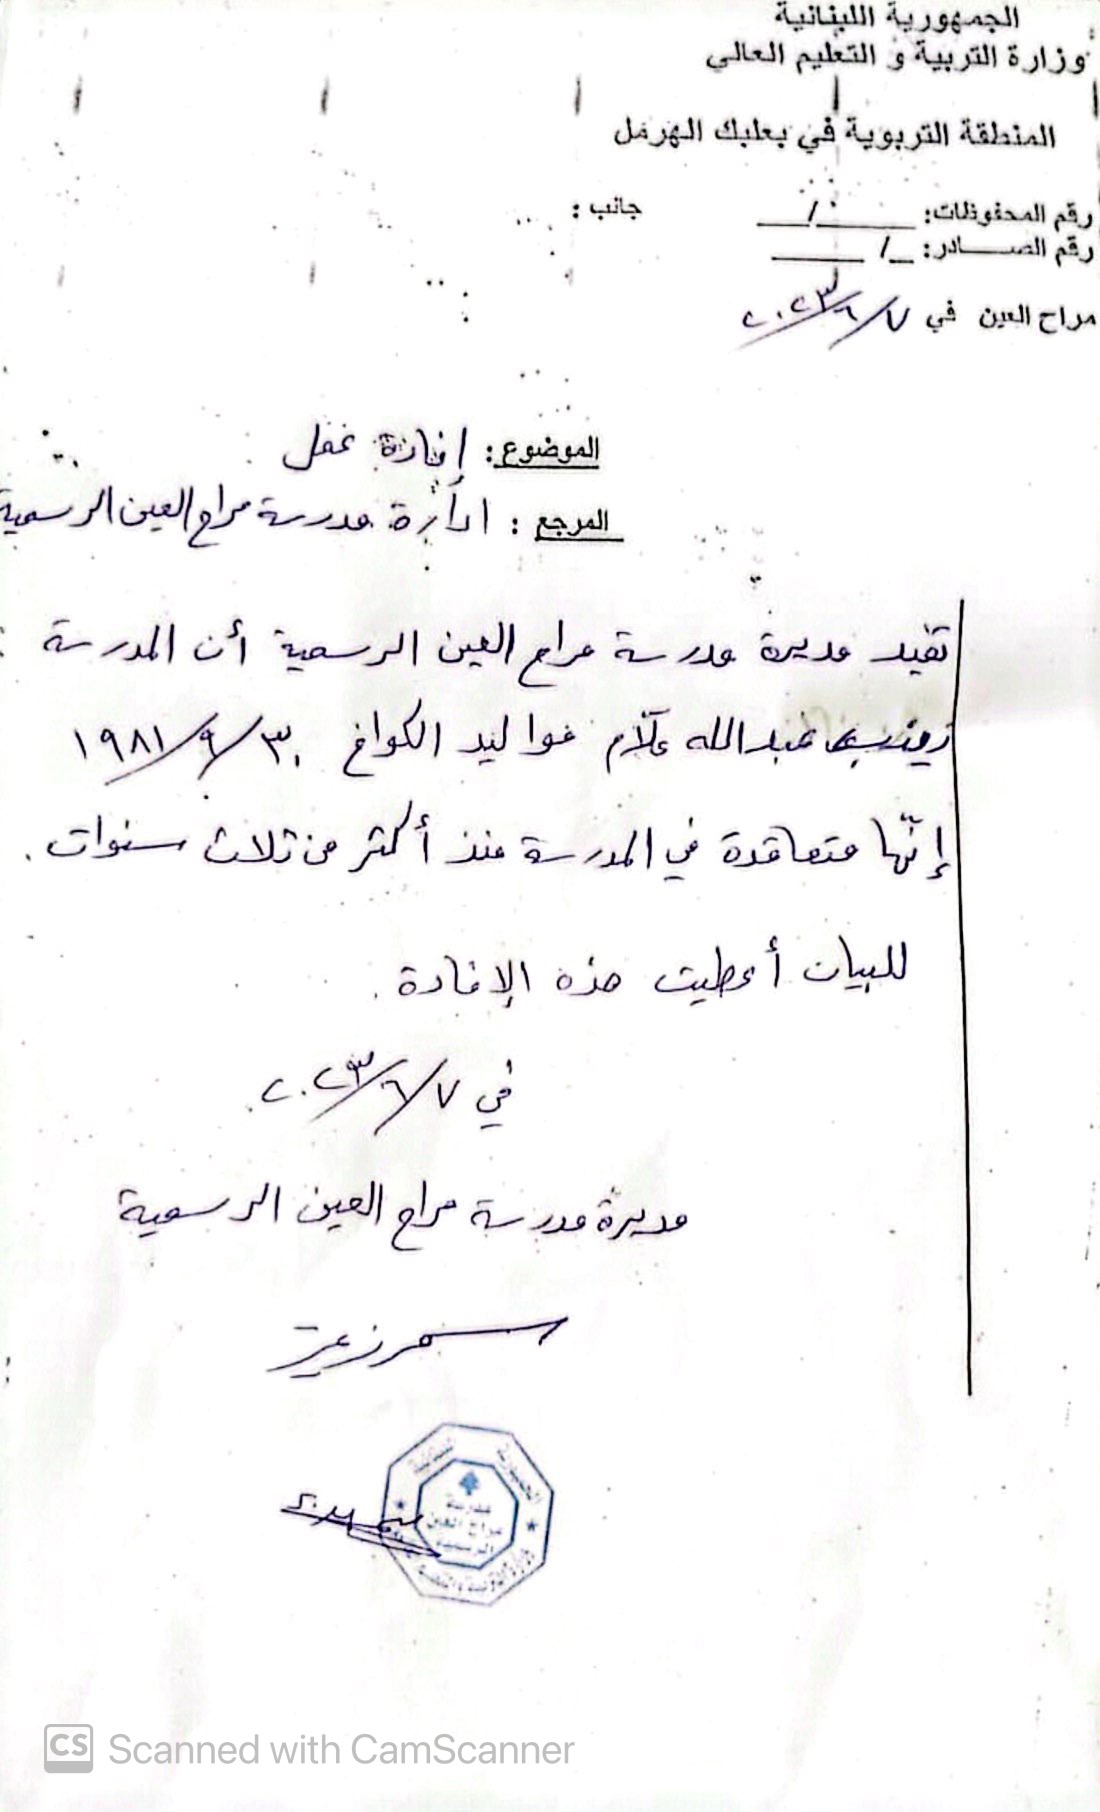 الجمهورية اللبنانية
وزارة التربية و التعليم العالي
المنطقة التربوية في بعلبك الهرمل
رقم المحفوظات: ____/____ جانب :
رقم الصـــادر: _/ ____
مراح العين في ٢٠٢٣/٦/٧
الموضوع: إفادة عمل
المرجع : ادارة مدرسة مراح العين الرسمية
تفيد مديرة مدرسة مراح العين الرسمية أن المدرسة :
زينب عبدالله علّام مواليد الكواخ ١٩٨١/٩/٣٠
إنّها متعاقدة في المدرسة منذ أكثر من ثلاث سنوات .
للبيان أعطيت هذه الإفادة .
في ٢٠٢٣/٦/٧
مديرة مدرسة مراح العين الرسمية
سمر زعيتر
الجمهورية اللبنانية
مدرسة
مراح العين
الرسمية
CS Scanned with CamScanner